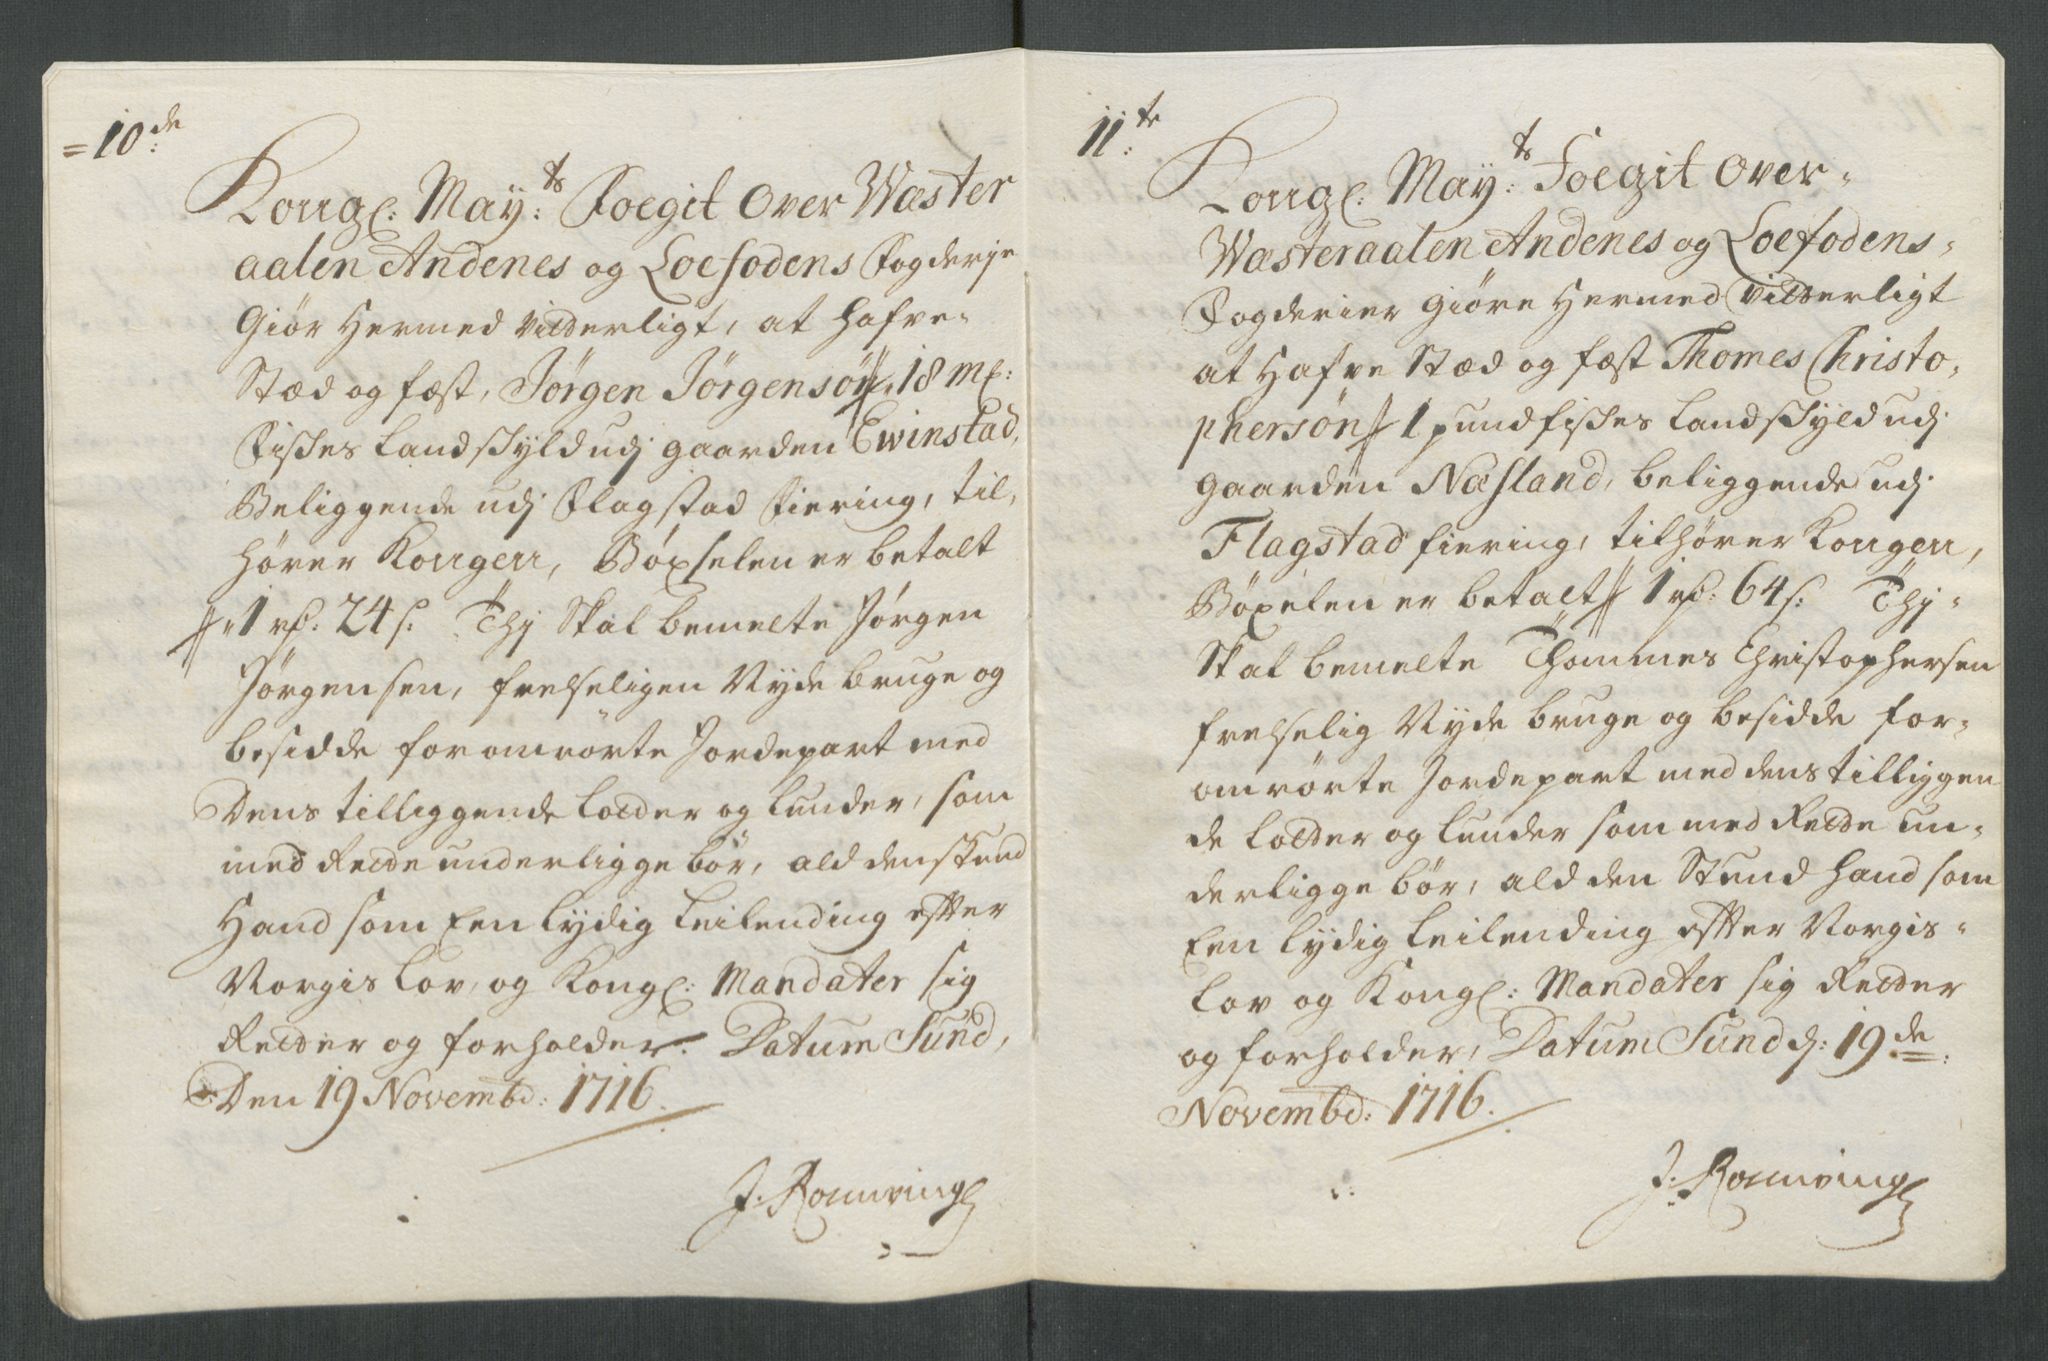 =10de:
Kongl: May:ts Foegit over Wæster
aalen Andenes og Loefodens Fogderje
Giör Hermed Vitterligt, at hafve-
Stæd og fæst, Jörgen Jörgensön, 18 ml:
Fisches Landschyld udj gaarden Ewinstad,
Beliggende udj Flagstad Fiering, til,
hører Kongen, Böxselen er betalt
1 rd: 24 s: Thj Skal bemelte Jörgen
Jörgensen, frelseligen Nyde bruge og
besidde foromrörte Jordepart med
Dens tilliggende Lotter og Lunder, som
med Rette underligge bör, ald den stund
Hand som Een lydig Leilending efter
Norgis Lov, og Kongl: Mandater sig
Retter og forholder. Datum Sund,
Den 19 Novembr: 1716.
J: Rounving
11te:
Kongl: May:ts Foegit over-
Wæsteraalen Andenes og Loefodens-
Fogderier Giöre Hermed Vitterligt
at Hafve Stæd og fæst Thomes Christo,
phersön 1 pund fisches Landschyld udj
gaarden Næsland, beliggende udj
Flagstad fiering, tilhører Kongen,
Böxelen er betalt 1 rd: 64 s: Thj-
Skal bemelte Thommes Christophersen
frelselig Nyde bruge og besidde for-
omrörte Jordepart med dens tilliggen
de Lotter og Lunder som med Rette un-
derligge bör, ald den Stund hand som
Een lydig Leilending efter Norgis-
Lov og Kongl: Mandater sig Retter
og forholder, Datum Sund d: 19de:
Novembr: 1716.
J: Rounving